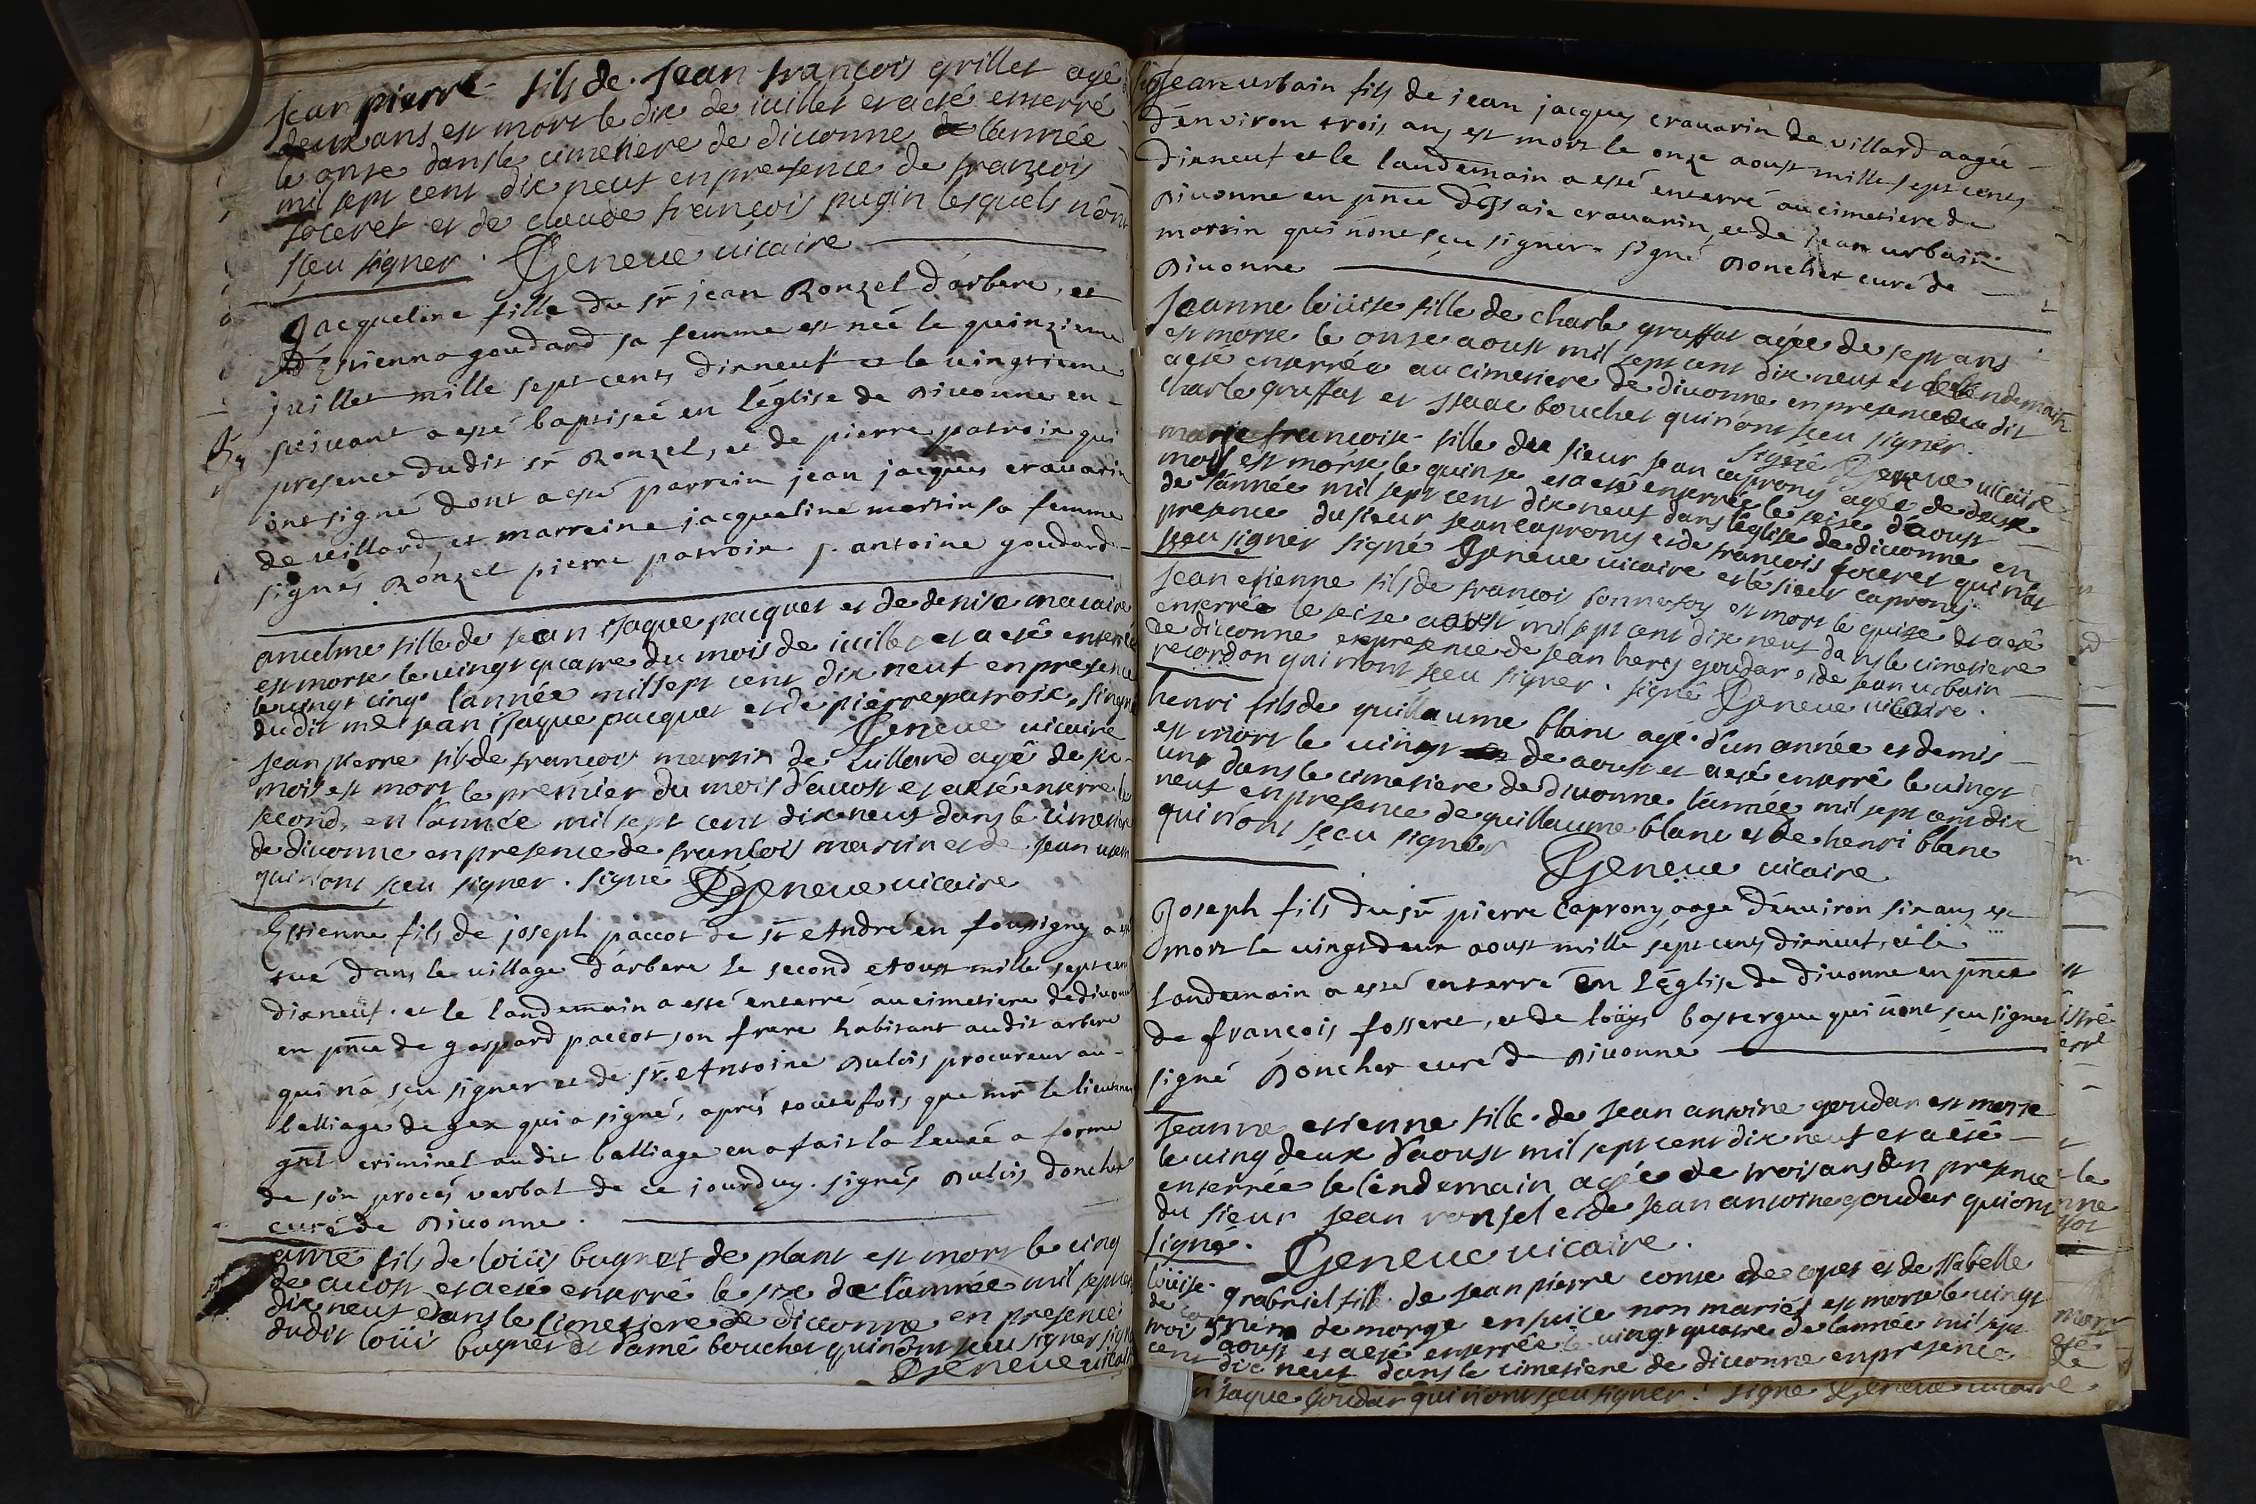 Jean pierre fils de Jean françois grillet agé
deux ans est mort le dix de iuillet et a eté enterré
le onse dans le cimetiere de diuonne de lannée
mil sept cent dix neuf en presence de françois
foceret et de claude françois pugin lesquels nont
sceu signer. Geneue uicaire
Jacqueline fille du sr jean Ronzel d'arbere, et
d'Estienna goudard sa femme est neé le quinzieme
juillet mille sept cents dixneuf et le uingtieme
suiuant a esté baptiseé en l'église de Diuonne en
presence dudit sr Ronzel, et de pierre patroix qui
ont signé dont a esté parrein jean jacques crauarin
de uillard, et marreine jacqueline martin sa femme
signés Ronzel pierre patroix j. antoine goudard
ancelme fille de jean isaque pacquet et de denise macaire
est morte le uingt quatre du mois de iuillet et a eté enterrée
le uingt cinq lannée mil sept cent dix neuf en presence
du dit me jean isaque pacquet et de pierre patroix, signé
Geneue uicaire
Jean pierre fils de françois martin de Villard agé de six
mois est mort le premier du mois d'auost et a eté enterré le
second, en lannée mil sept cent dix neuf dans le cimetiere
de diuonne en presence de francois martin et de jean
qui n'ont sceu signer. signé Geneue uicaire
Estienne fils de joseph paccot de st André en fousigny a esté
tué dans le uillage d'arbere le second Aoust mille sept cent
dixneuf. et le landemain a esté enterré au cimetiere de diuonne
en pnce de gaspard paccot son frere habitant audit arbere
qui n'a sçu signer et de sr Antoine Dulois procureur au
balliage de gex qui a signé, aprés toutefois que mr le lieutenant
gnl criminel audit balliage en a fait la leueé a forme
de son procés uerbal de ce jourduy. signés Dulois, Doncher
curé de Diuonne.
amé fils de loüis bugnet de plant est mort le cinq
de auost et a eté enterré le six de lannée mil sept cent
dix neuf dans le cimetiere de diuonne en presence
dudit loüis bugnet et damé boucher qui n'ont sceu signer signé
Geneue uicaire
Jean urbain fils de jean jacques crauarin de uillard aagée
d'énuiron trois ans est mort le onze aoust mille sept cents
dixneuf et le landemain a esté enterré au cimetiere de
Diuonne en pnce d'Esaie crauarin, et de jean urbain
martin qui n'ont sçu signer. signé Doncher curé de
Diuonne
Jeanne loüise fille de charle gruffat agée de sept ans
est morte le onse aoust mil sept cent dix neuf et le lendemain
a eté enterrée au cimetiere de diuonne en presence du dit
charle gruffat et isaac boucher qui n'ont sceu signer.
signé Geneue uicaire
marie francoise fille du sieur jean caprony agée de deux
mois est morte le quinse et a eté enterrée le seise d'aoust
de lannée mil sept cent dix neuf dans l'église de diuonne en
presence du sieur jean caprony et de françois foceret qui n'at
sceu signer signé Geneue uicaire et le sieur caprony
Jean etienne fils de françois bonnefoy est mort le quise et a eté
enterrée le seize aoust mil sept cent dix neuf dans le cimetiere
de diuonne en presence de jean goudar et de jean urbain
recordon qui n'ont sceu signer. signé Geneue uicaire.
henri fils de guillaume blanc agé d'un année et demis
est mort le uingt de aoust et a eté enterré le uingt
un dans le cimetiere de diuonne lannée mil sept cent dix
neuf en presence de guillaume blanc et de henri blanc
qui n'ont sceu signer Geneue uicaire
Joseph fils du sr pierre Caprony aagé d'énuiron six ans est
mort le uingtdeux aoust mille sept cents dixneuf, et le
landemain a esté enterré en l'Église de diuonne en pnce
de françois fosseret, et de loüys bastergue qui n'ont sçu signer
signé Doncher curé de Diuonne
Jeanne etienne fille de jean antoine goudar est morte
le uing deux d'aoust mil sept cent dix neuf et a eté
enterrée le lendemain agée de trois ans en presence
du sieur jean ronsel et de jean antoine goudar qui ont
signé. Geneue uicaire.
loüise gabriel fille de jean pierre conte de copet et de isabelle
de de morge en suice non mariés est morte le uingt
trois aoust et a eté enterrée le uingt quatre de lannée mil sept
cent dix neuf dans le cimetiere de diuonne en presence
isaque goudar qui n'ont sceu signer. signé Geneue uicaire